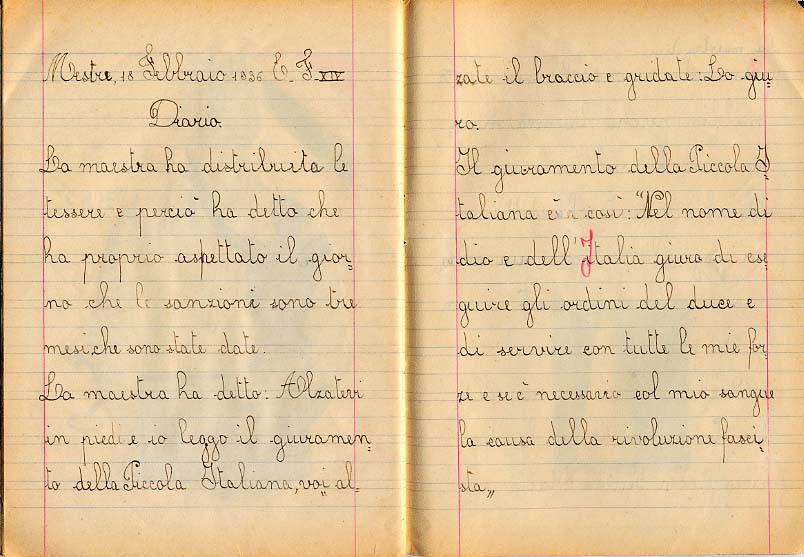 Mestre, 18 Febbraio 1936 E. F. XIV
Diario.
La maestra ha distribuita le
tessere e perciò ha detto che
ha proprio aspettato il gior-
no che le sanzioni sono tre
mesi che sono state date.
La maestra ha detto: Alzatevi
in piedi e io leggo il giuramen-
to della Piccola Italiana, voi al-
zate il braccio e gridate: Lo giu-
ro.
Il giuramento della Piccola I-
taliana è così: "Nel nome di
dio e dell'Italia giuro di ese
guire gli ordini del duce e
di servire con tutte le mie for
ze e se è necessario col mio sangue
la causa della rivoluzione fasci-
sta„